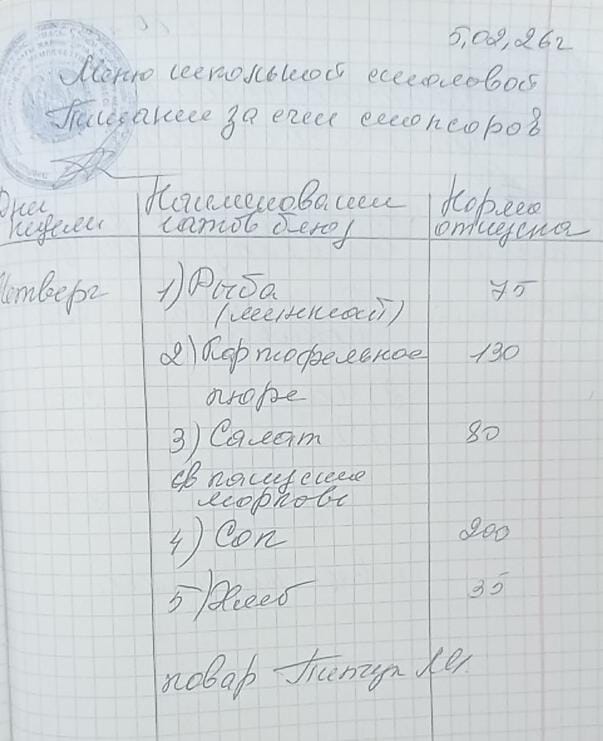 5,02,26г
Меню школьной столовой
Питание за счет спонсоров
Дни Наименование Норма
недели блюд отпуска
Четверг 1) Рыба 75
(минтай)
2) Картофельное 130
пюре
3) Салат 80
морковь
4) Сок 200
5) Хлеб 35
повар